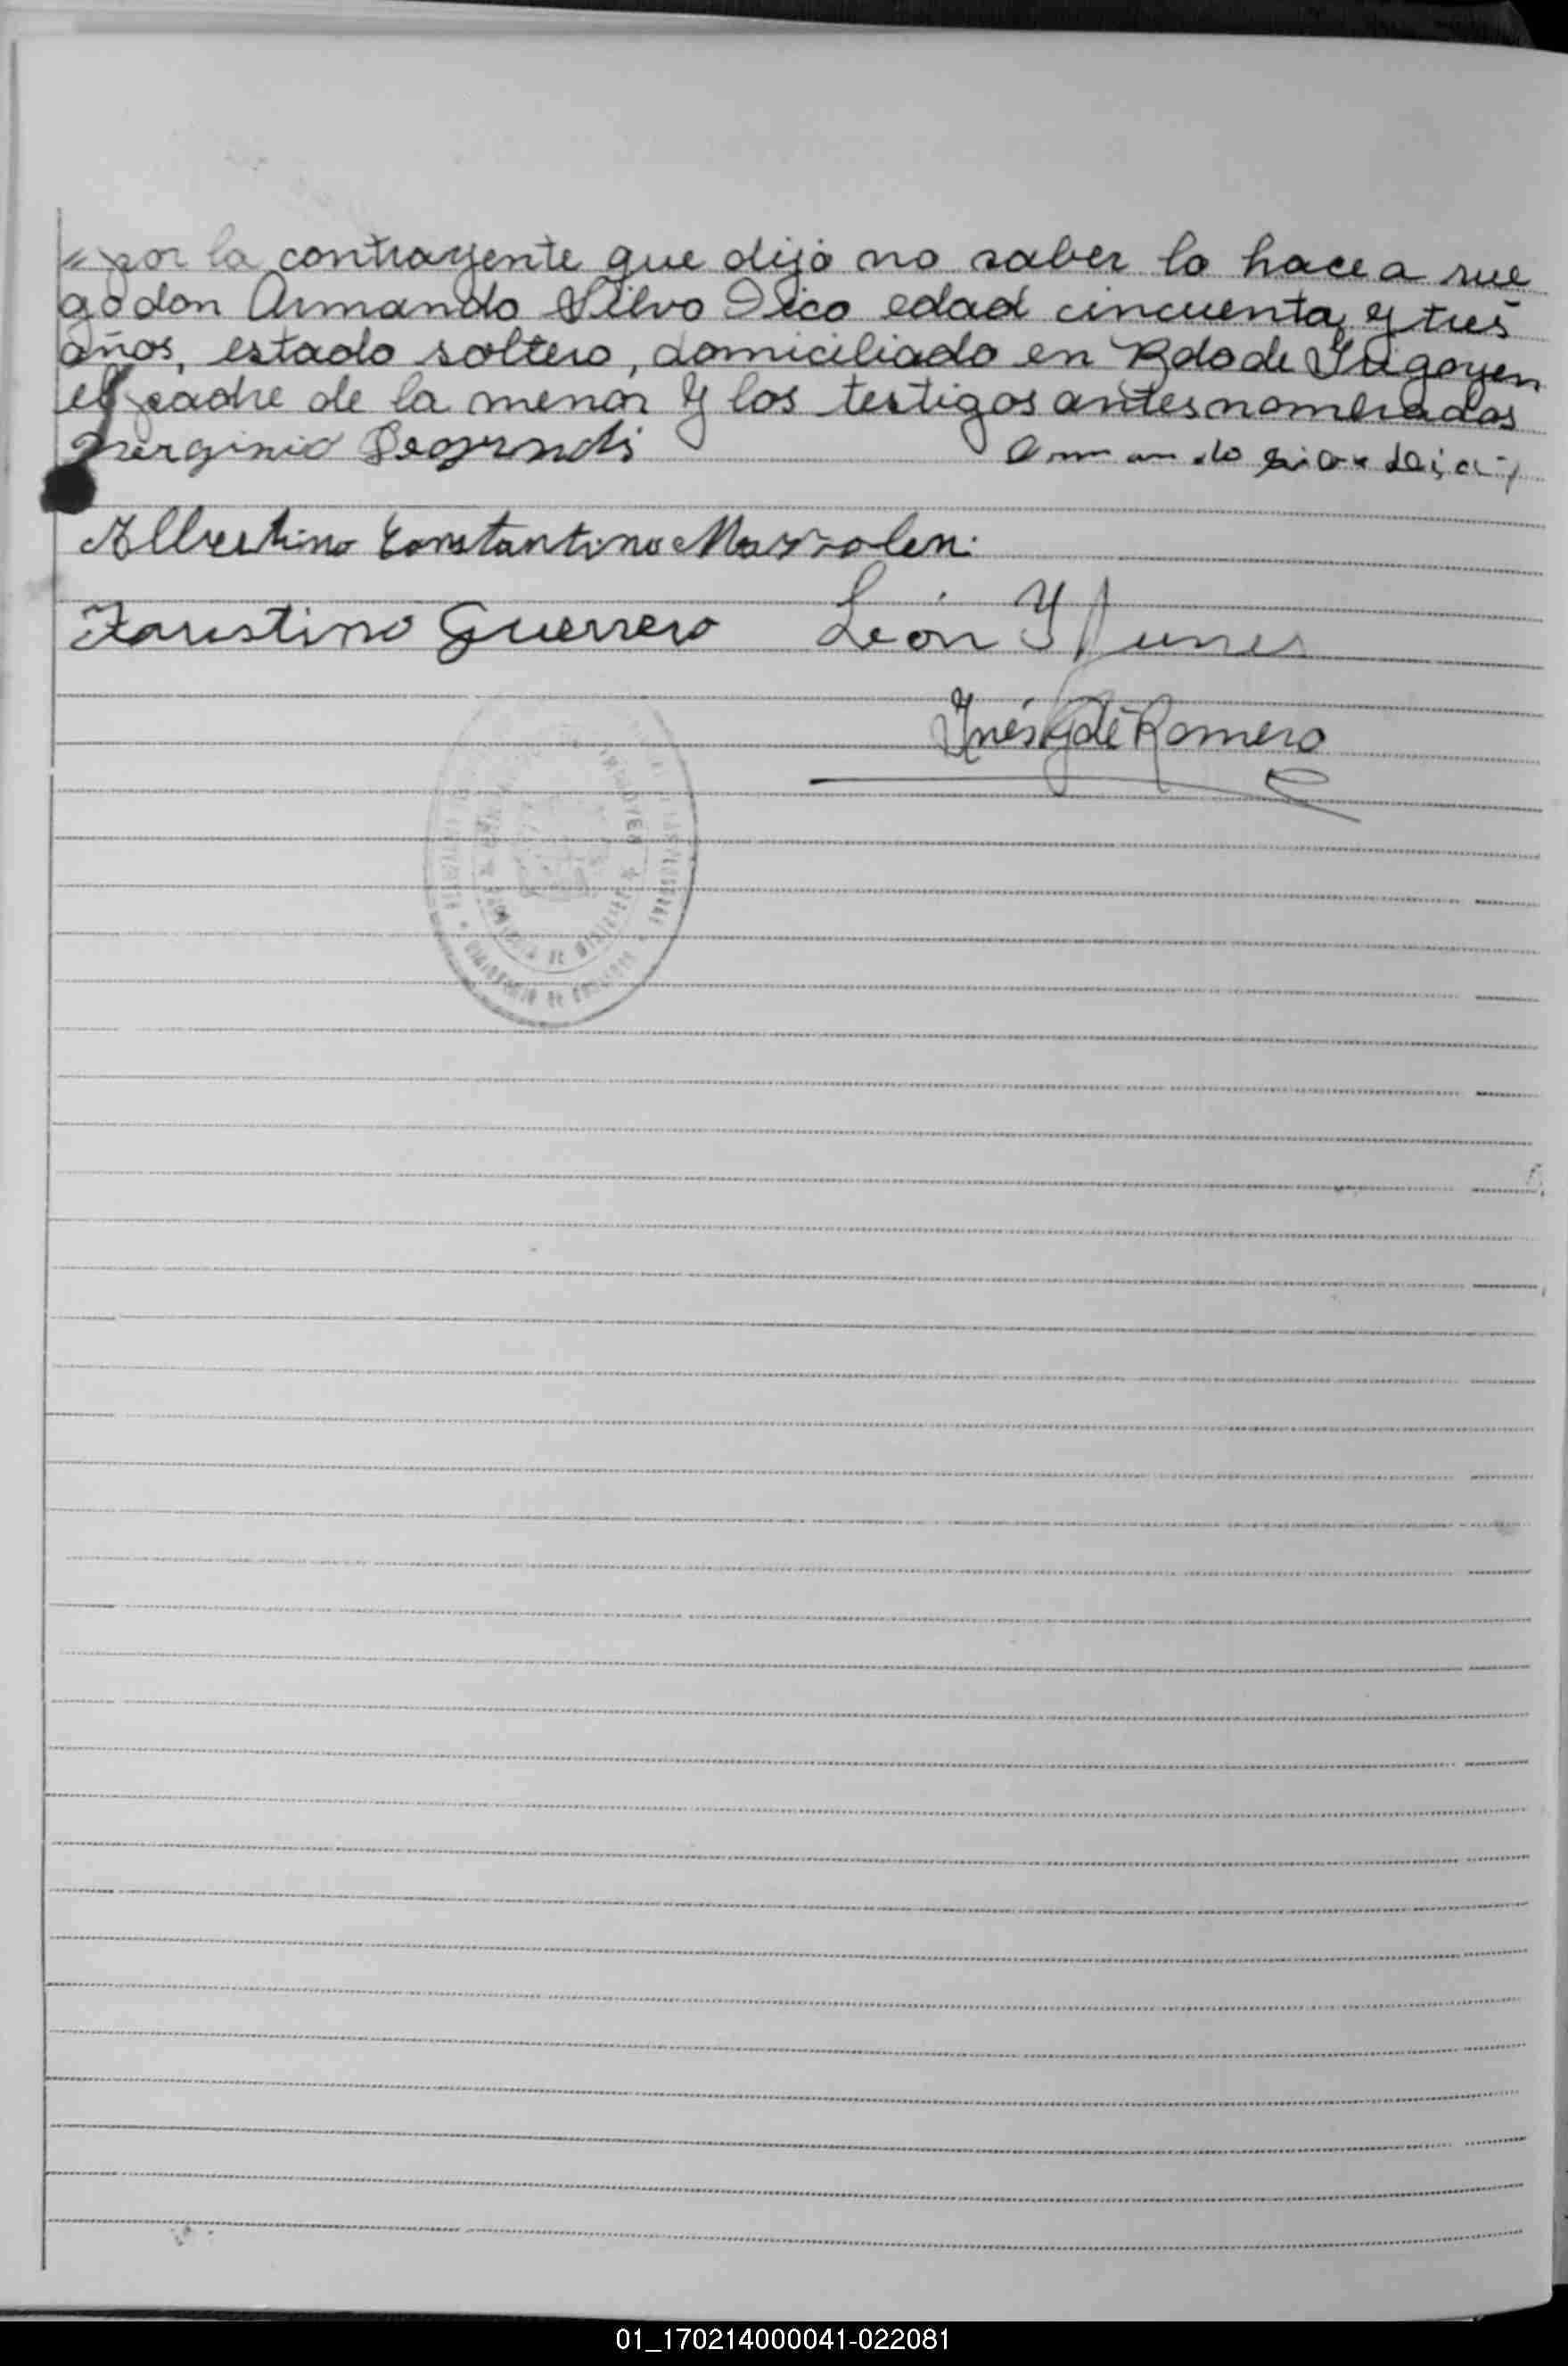 " por la contrayente que dijo no saber lo hace a rue
go don Armando Silvo Dico edad cincuenta y tres
años, estado soltero, domiciliado en Bdo de Irigoyen
el padre de la menor y los testigos antes nombrados
Armando
Albertino Constantino Mazzoleni
Faustino Guerrero León Y Nunes
Inés G de Romero
01_170214000041-022081